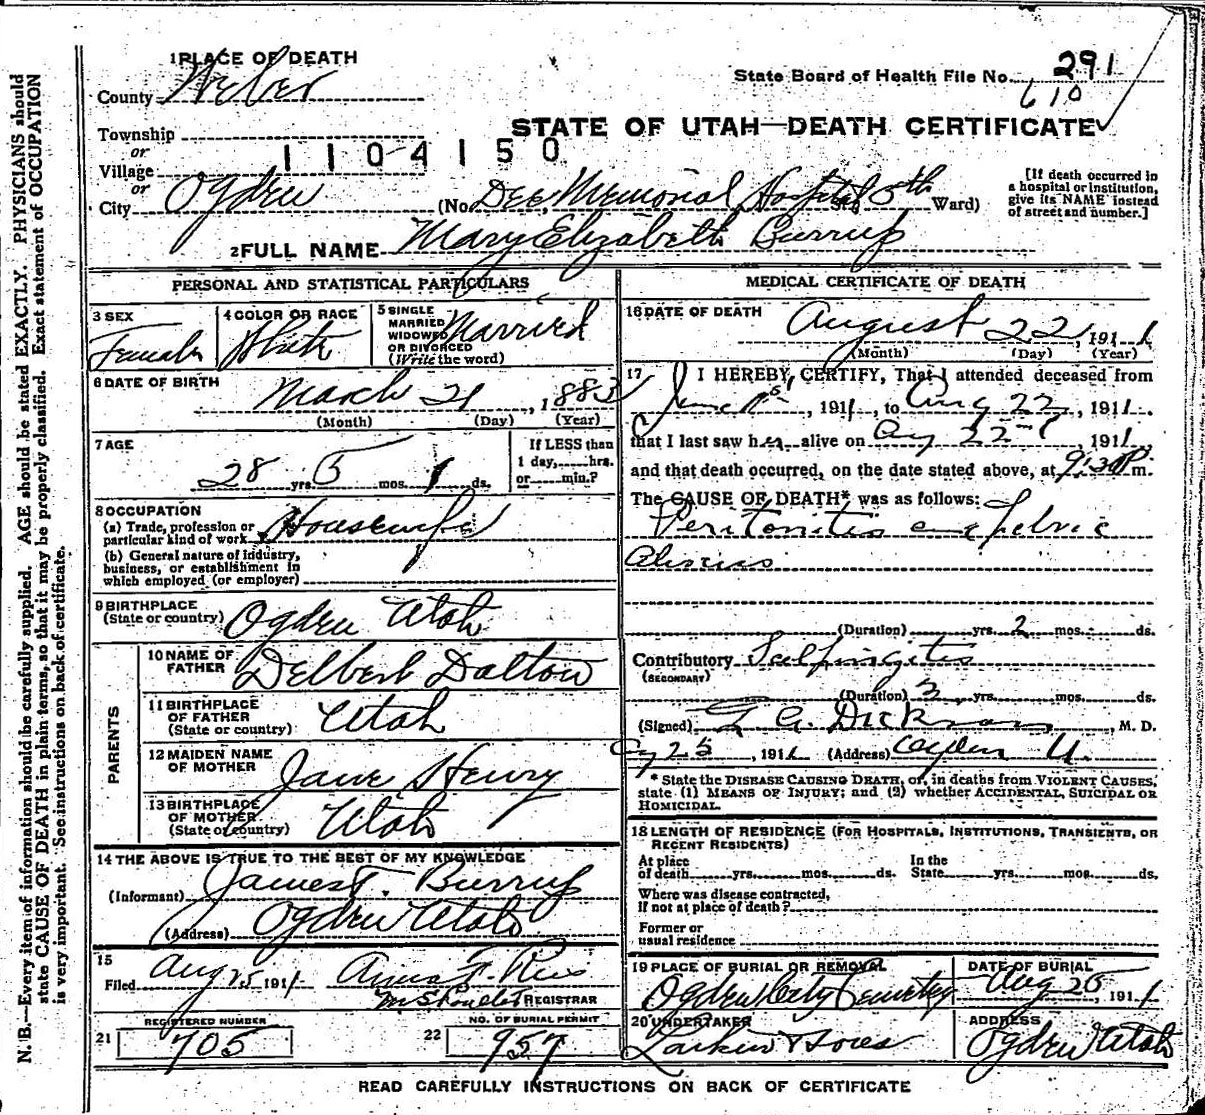 N. B.—Every item of information should be carefully supplied. AGE should be stated EXACTLY. PHYSICIANS should
state CAUSE OF DEATH in plain terms, so that it may be properly classified. Exact statement of OCCUPATION
is very important. See instructions on back of certificate.
1 PLACE OF DEATH
County Weber
State Board of Health File No. 291
610
STATE OF UTAH—DEATH CERTIFICATE
Township
or
1104150
Village
or
City Ogden (No. Dee Memorial Hospital St. 5th Ward)
[If death occurred in
a hospital or institution,
give its NAME instead
of street and number.]
2 FULL NAME Mary Elizabeth Burrup
PERSONAL AND STATISTICAL PARTICULARS
3 SEX
Female
4 COLOR OR RACE
White
5 SINGLE
MARRIED
WIDOWED
OR DIVORCED
(Write the word)
Married
6 DATE OF BIRTH
March 21, 1883
(Month) (Day) (Year)
7 AGE
28 yrs. 5 mos. 1 ds.
If LESS than
1 day, hrs.
or min.?
8 OCCUPATION
(a) Trade, profession or
particular kind of work Housewife
(b) General nature of industry,
business, or establishment in
which employed (or employer)
9 BIRTHPLACE
(State or country) Ogden Utah
PARENTS
10 NAME OF
FATHER Delbert Dalton
11 BIRTHPLACE
OF FATHER
(State or country) Utah
12 MAIDEN NAME
OF MOTHER Jane Henry
13 BIRTHPLACE
OF MOTHER
(State or country) Utah
14 THE ABOVE IS TRUE TO THE BEST OF MY KNOWLEDGE
(Informant) James T. Burrup
(Address) Ogden Utah
15
Filed Aug 25 1911 Anna F.
REGISTRAR
21 REGISTERED NUMBER
705
22 NO. OF BURIAL PERMIT
957
MEDICAL CERTIFICATE OF DEATH
16 DATE OF DEATH
August 22, 1911
(Month) (Day) (Year)
17 I HEREBY CERTIFY, That I attended deceased from
June, 1911, to Aug 22, 1911.
that I last saw her alive on Aug 22, 1911,
and that death occurred, on the date stated above, at 9:30 P m.
The CAUSE OF DEATH* was as follows:
Peritonitis Pelvic
Abscess
(Duration) yrs. 2 mos. ds.
Contributory Salpingitis
(SECONDARY)
(Duration) 3 yrs. mos. ds.
(Signed) Dickson, M. D.
Aug 25, 1911 (Address) Ogden U.
* State the DISEASE CAUSING DEATH, or, in deaths from VIOLENT CAUSES,
state (1) MEANS OF INJURY; and (2) whether ACCIDENTAL, SUICIDAL OR
HOMICIDAL.
18 LENGTH OF RESIDENCE (FOR HOSPITALS, INSTITUTIONS, TRANSIENTS, OR
RECENT RESIDENTS)
At place
of death yrs. mos. ds.
In the
State yrs. mos. ds.
Where was disease contracted,
if not at place of death?
Former or
usual residence
19 PLACE OF BURIAL OR REMOVAL
Ogden City Cemetery
DATE OF BURIAL
Aug 25, 1911
20 UNDERTAKER
Larkin & Sons
ADDRESS
Ogden Utah
READ CAREFULLY INSTRUCTIONS ON BACK OF CERTIFICATE